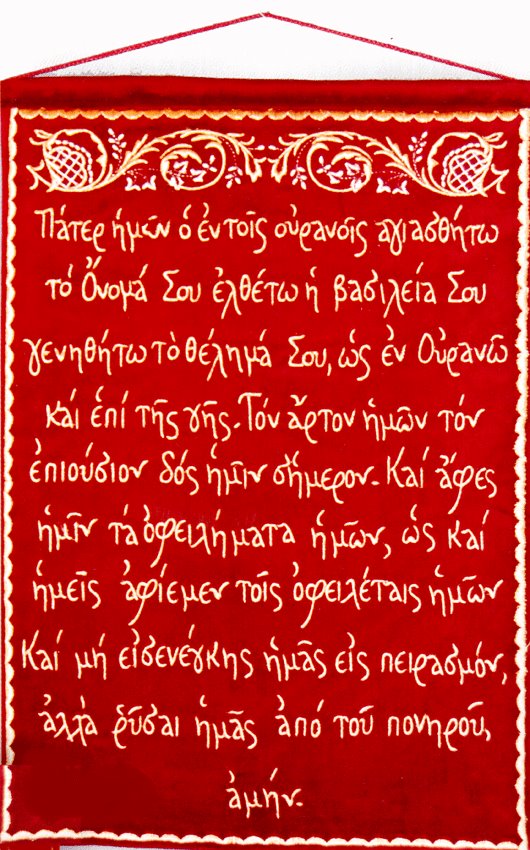 Πάτερ ἡμῶν ὁ ἐν τοῖς οὐρανοῖς αγιασθήτω
τό Ὄνομά Σου ἐλθέτω ἡ βασιλεία Σου
γενηθήτω τὸ θέλημά Σου, ὡς ἐν Οὐρανῶ
καί ἐπί τῆς γῆς. Τόν ἄρτον ἡμῶν τόν
ἐπιούσιον δός ἡμῖν σήμερον. Καί ἄφες
ἡμῖν τά ὀφειλήματα ἡμῶν, ὡς καί
ἡμεῖς ἀφίεμεν τοῖς ὀφειλέταις ἡμῶν
Καί μή εἰσενέγκης ἡμᾶς εἰς πειρασμόν,
ἀλλά ῥῦσαι ἡμᾶς ἀπό τοῦ πονηροῦ,
ἀμήν.